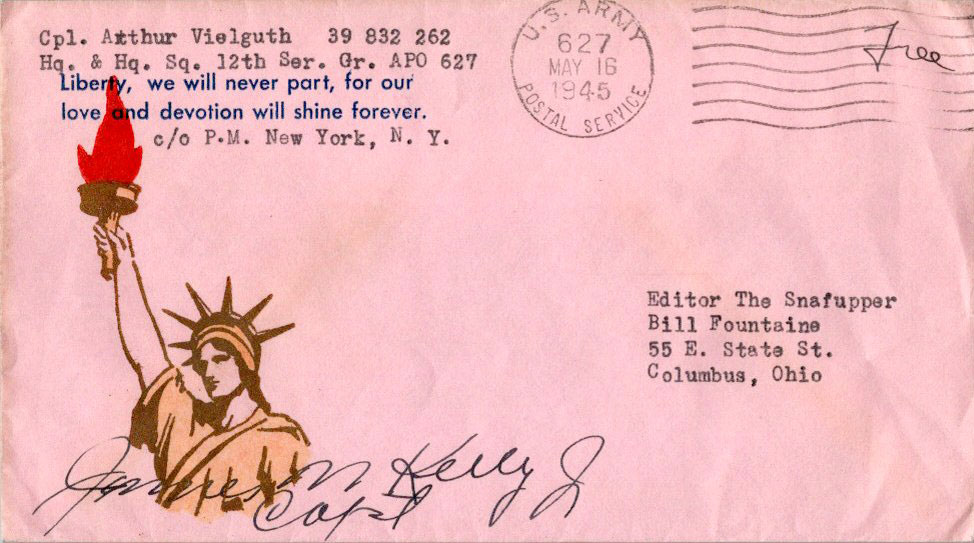 Cpl. Arthur Vielguth 39 832 262
Hq. & Hq. Sq. 12th Ser. Gr. APO 627
Liberty, we will never part, for our
love and devotion will shine forever.
c/o P.M. New York, N. Y.
U.S. ARMY
627
MAY 16
1945
POSTAL SERVICE
Free
Editor The Snafupper
Bill Fountaine
55 E. State St.
Columbus, Ohio
James M Kelly Jr
Capt